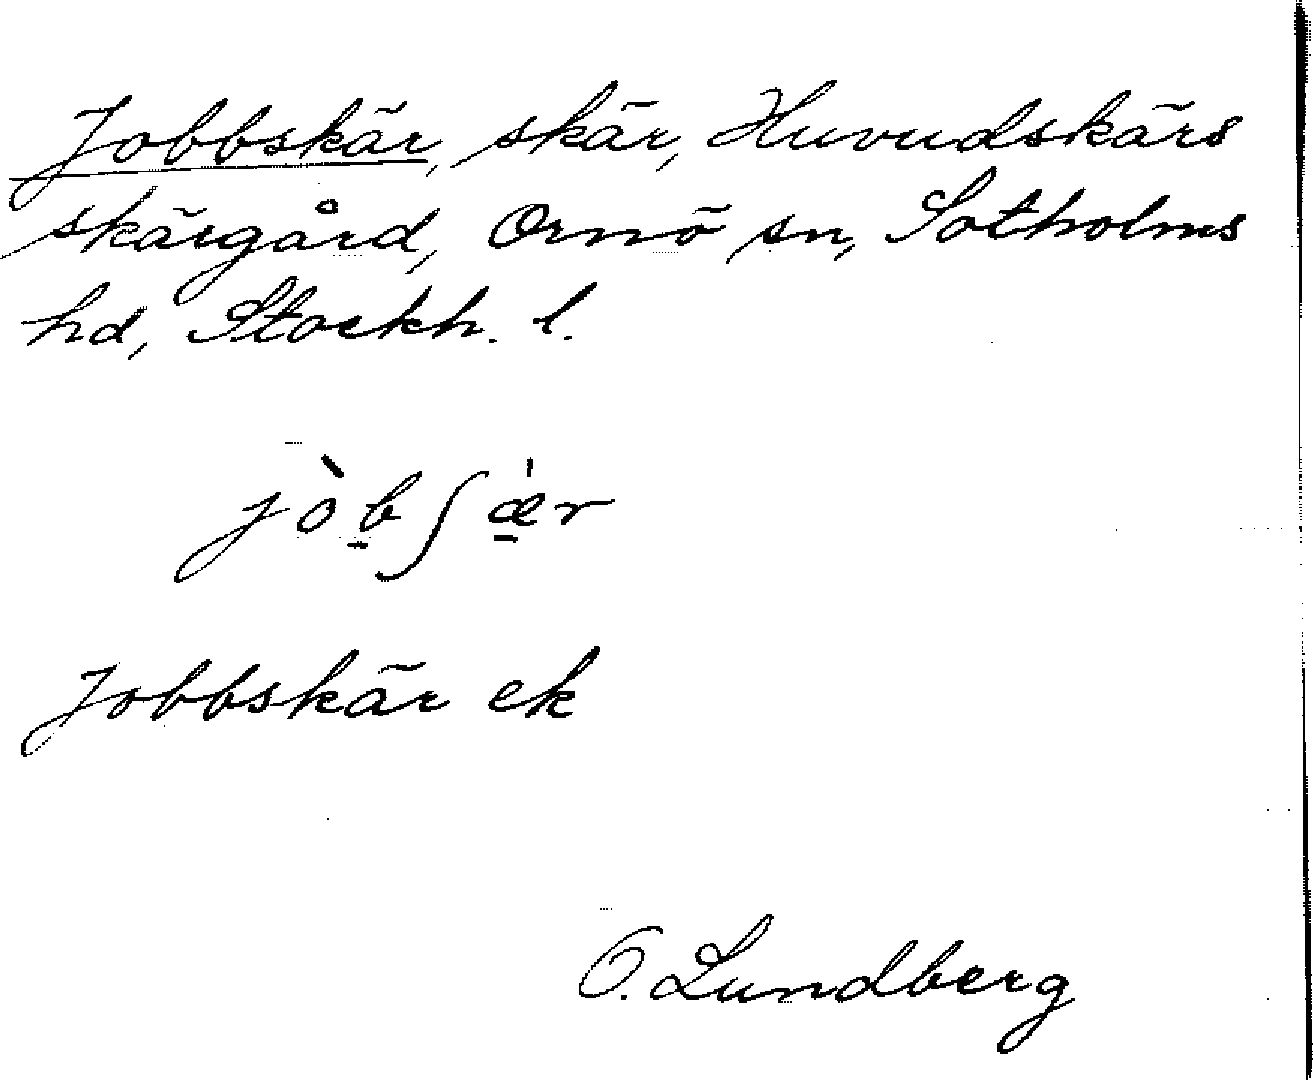 Jobbskär, skär, Huvudskärs
skärgård, Ornö sn, Sotholms
hd, Stockh. l.
jòb̲ʃæ̲̍r
Jobbskär ek
O. Lundberg